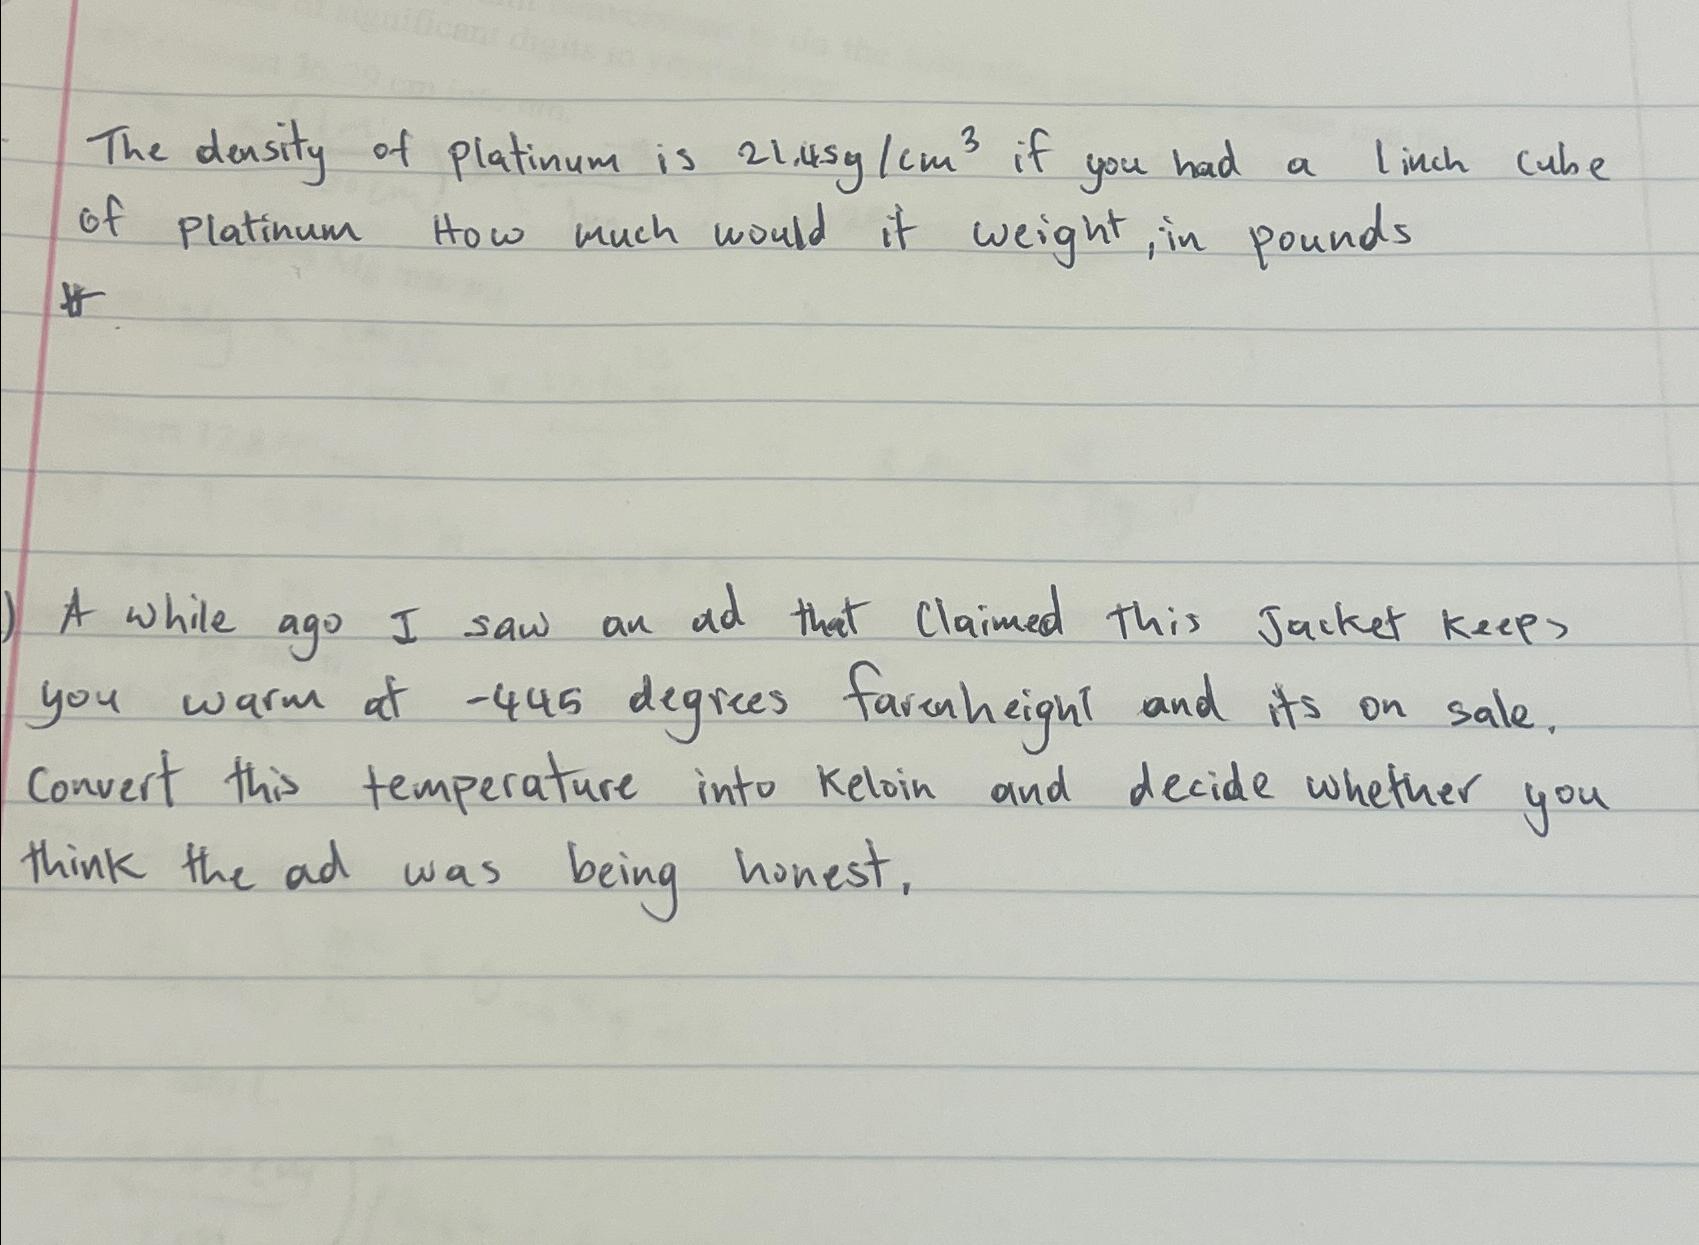 The density of platinum is 21.45g/cm³ if you had a 1 inch cube
of platinum How much would it weight, in pounds
) A while ago I saw an ad that claimed this Jacket keeps
you warm at -445 degrees farenheight and its on sale.
Convert this temperature into Kelvin and decide whether you
think the ad was being honest.